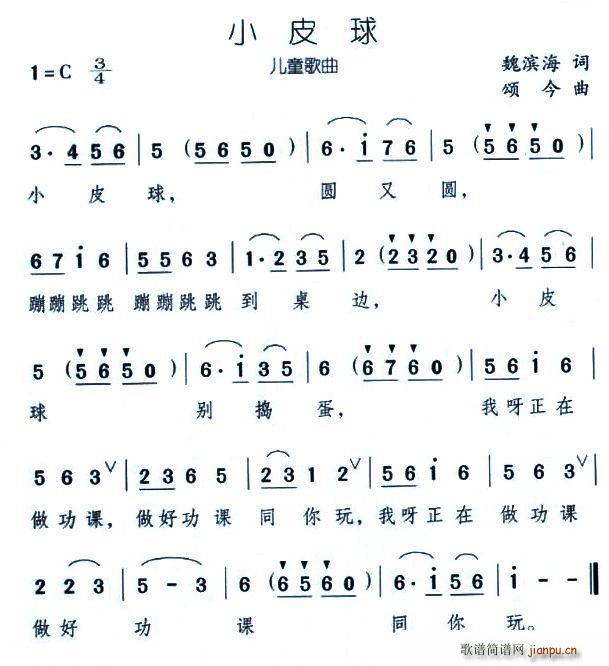 小皮球
1=C 3/4 儿童歌曲 魏滨海 词
颂今 曲
3·4 5 6 | 5 (5 6 5 0) | 6·i 7 6 | 5 (5 6 5 0) |
小 皮 球, 圆 又 圆,
6 7 i 6 | 5 5 6 3 | 1·2 3 5 | 2 (2 3 2 0) | 3·4 5 6 |
蹦蹦跳跳 蹦蹦跳跳 到 桌 边, 小 皮
5 (5 6 5 0) | 6·i 3 5 | 6 (6 7 6 0) | 5 6 i 6 |
球 别 捣 蛋, 我呀正在
5 6 3 V | 2 3 6 5 | 2 3 1 2 V | 5 6 i 6 | 5 6 3 |
做功课, 做好功课 同你玩, 我呀正在 做功课
2 2 3 | 5 - 3 | 6 (6 5 6 0) | 6·i 5 6 | i - - ‖
做好 功 课 同你玩。
歌谱简谱网 jianpu.cn